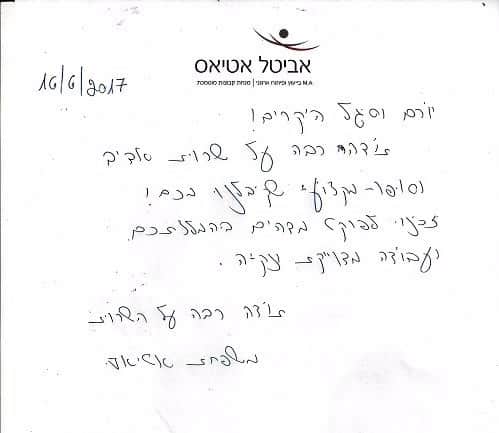 אביטל אטיאס
M.A בייעוץ ופיתוח ארגוני | מנחת קבוצות מוסמכת
16/6/2017
יורם וסגל היקרים!
תודה רבה על שרות אדיב
וסופר-מקצועי שקיבלנו מכם!
זכינו למוקד מדהים בהמלצתכם
ועבודה מדוייקת ונקיה.
תודה רבה על השרות
משפחת אטיאס